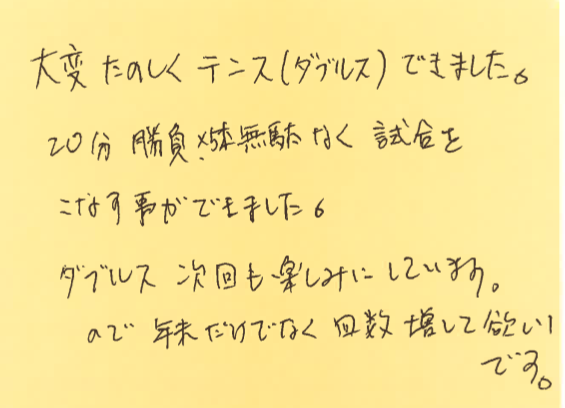 大変たのしくテンス(ダブルス)できました。
20分勝負 無駄なく試合を
こなす事ができました。
ダブルス次回も楽しみにしています。
ので年末だけでなく回数増して欲しい
です。